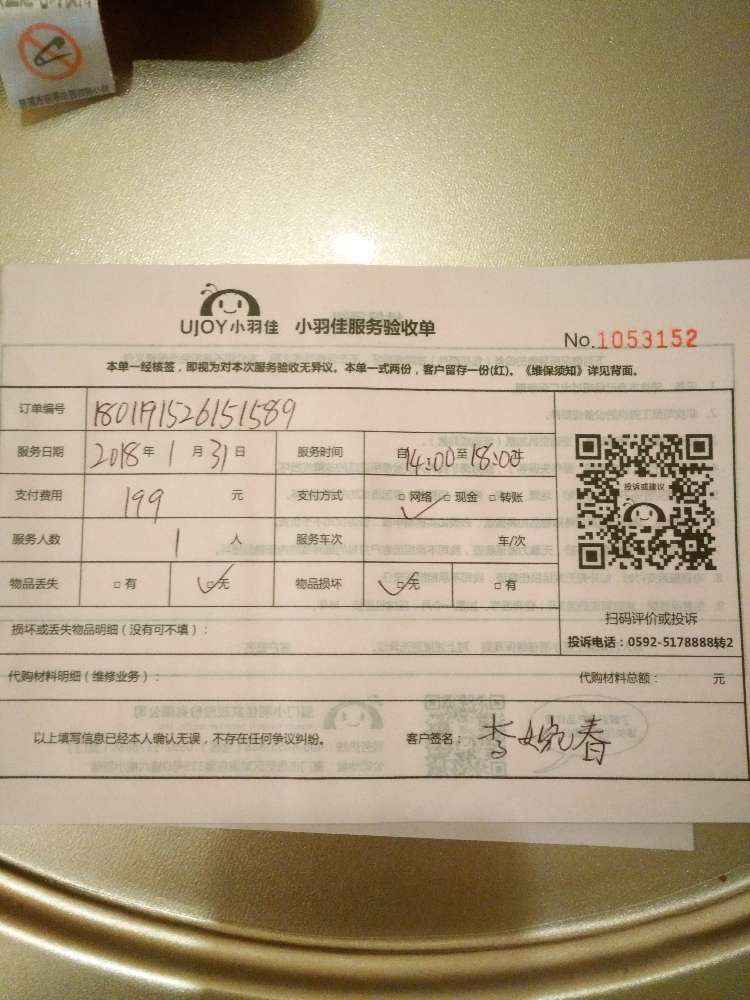 UJOY小羽佳 小羽佳服务验收单
No.1053152
本单一经核签，即视为对本次服务验收无异议。本单一式两份，客户留存一份(红)。《维保须知》详见背面。
订单编号 180191526151589
服务日期 2018年1月31日 服务时间 自14:00至18:00止
支付费用 199元 支付方式 □网络 □现金 □转账
投诉或建议
服务人数 1人 服务车次 车/次
物品丢失 □有 □无 物品损坏 □无 □有
扫码评价或投诉
损坏或丢失物品明细（没有可不填）：
投诉电话：0592-5178888转2
代购材料明细（维修业务）： 代购材料总额： 元
以上填写信息已经本人确认无误，不存在任何争议纠纷。 客户签名：李婉春